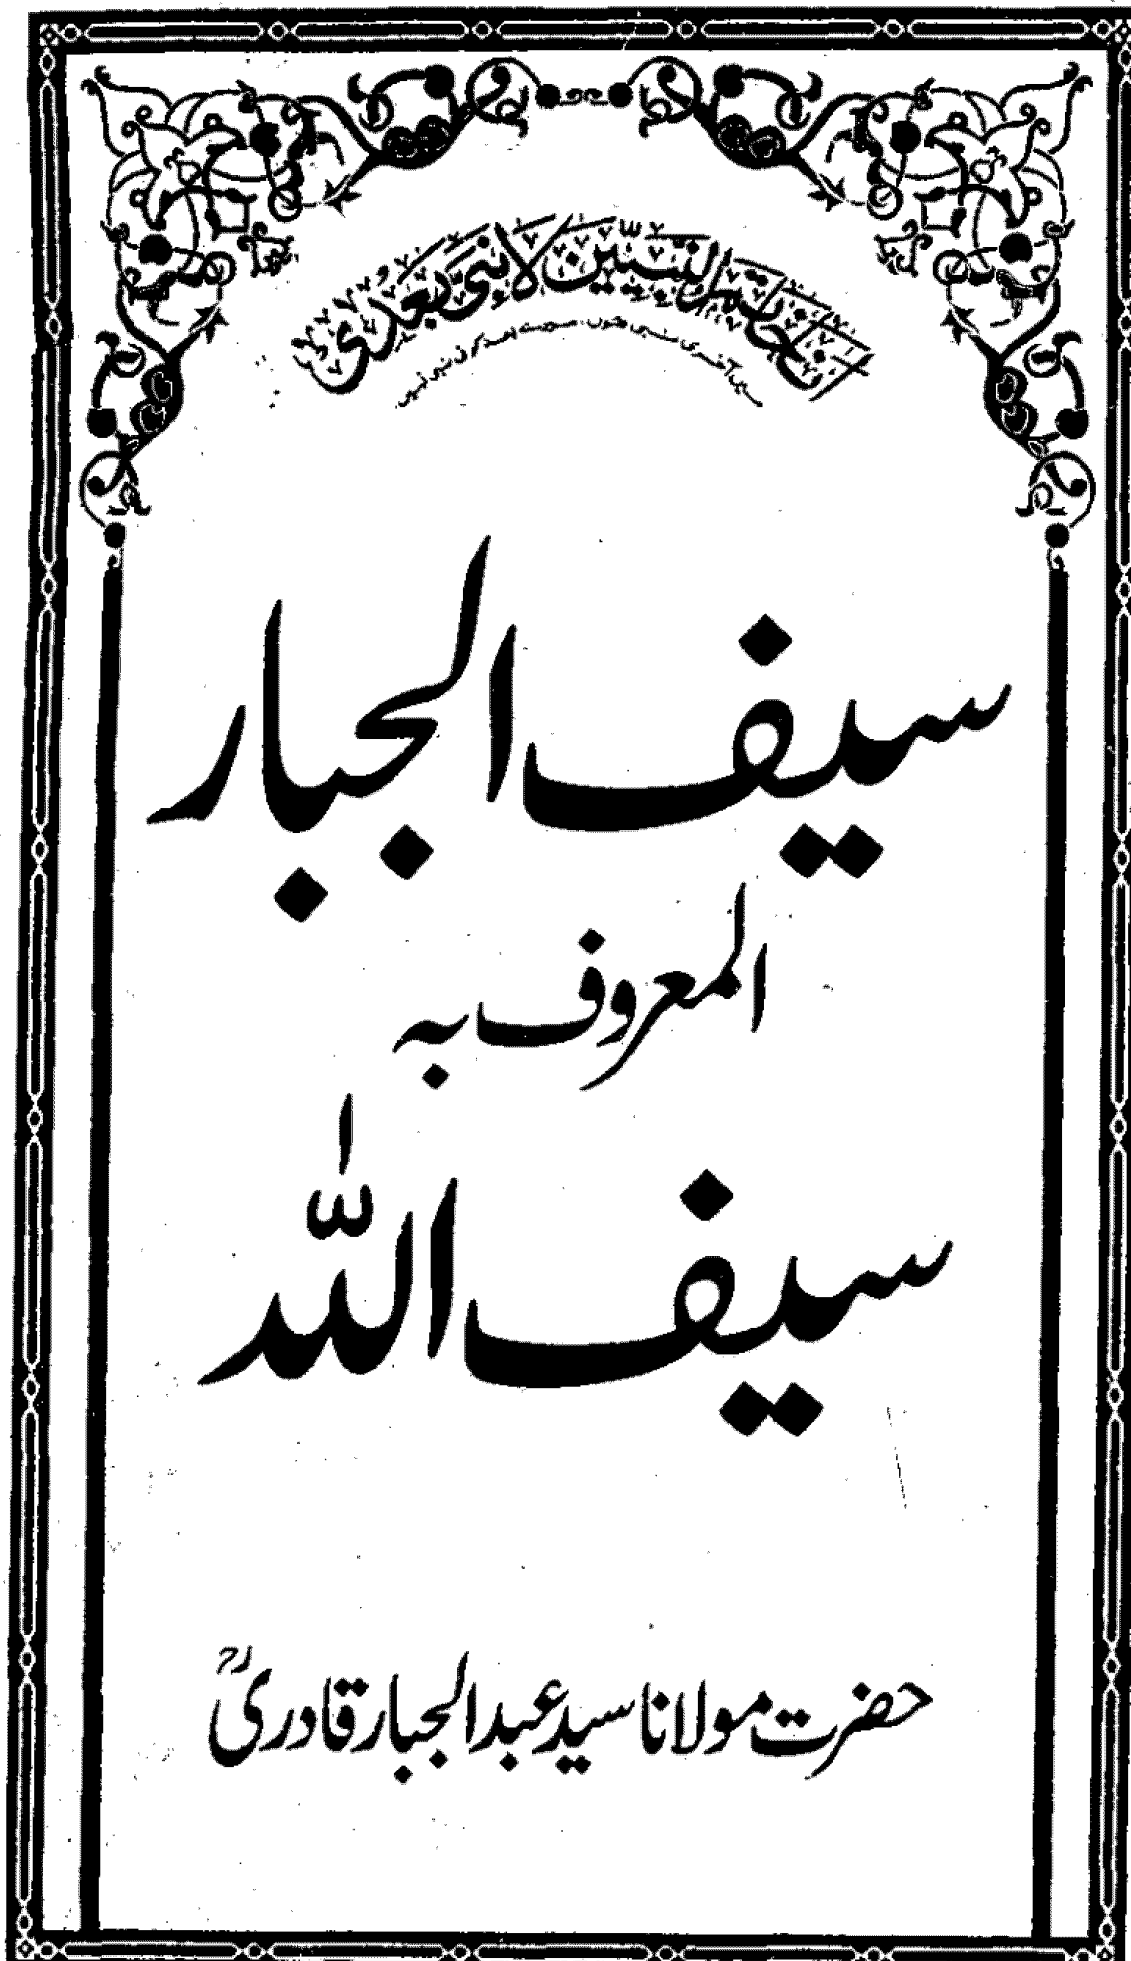 انا خاتم النبیین لا نبی بعدی
میں آخری نبی ہوں میرے بعد کوئی نبی نہیں
سیف الجبار
المعروف بہ
سیف اللہ
حضرت مولانا سید عبدالجبار قادریؒ